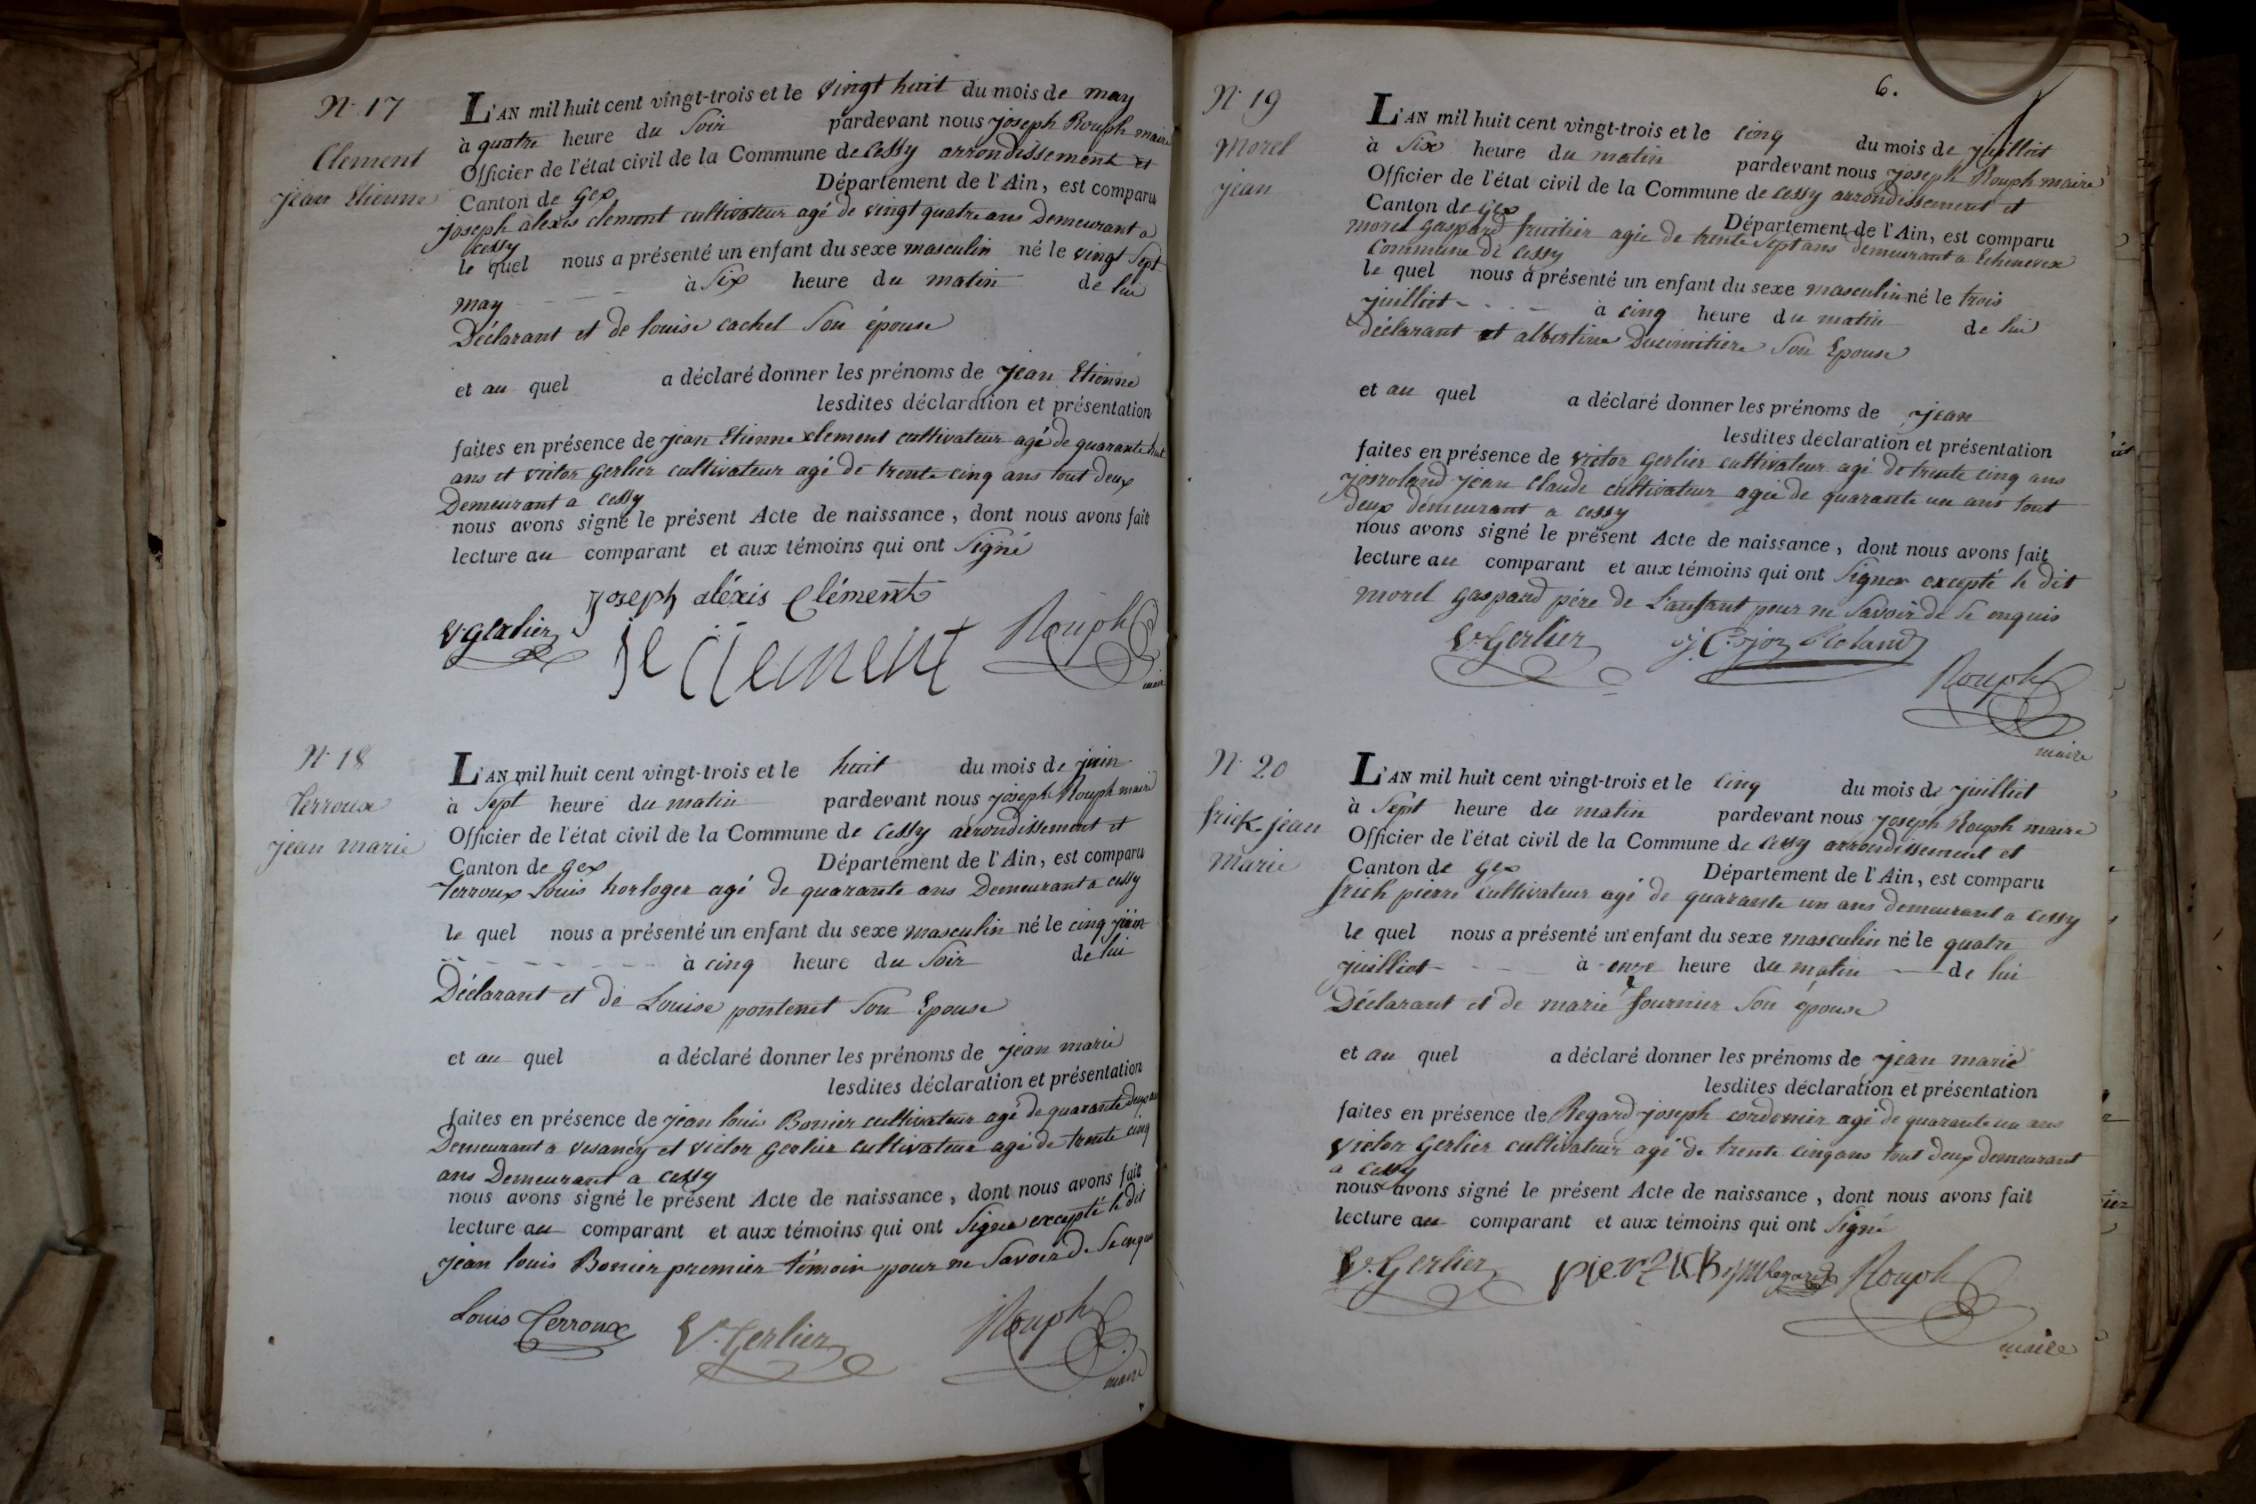 N. 17
Clement
jean Etienne
L'AN mil huit cent vingt-trois et le vingt huit du mois de may
à quatre heure du Soir pardevant nous joseph Rouph maire
Officier de l'état civil de la Commune de Cessy arrondissement et
Canton de Gex Département de l'Ain, est comparu
joseph alexis clement cultivateur agé de vingt quatre ans Demeurant a
cessy
le quel nous a présenté un enfant du sexe masculin né le vingt Sept
may à Six heure du matin de lui
Déclarant et de louise cachet Son épouse
et au quel a déclaré donner les prénoms de jean Etienne
lesdites déclaration et présentation
faites en présence de jean Etienne clement cultivateur agé de quarante huit
ans et victor Gerlier cultivateur agé de trente cinq ans tout deux
Demeurant a cessy
nous avons signé le présent Acte de naissance, dont nous avons fait
lecture au comparant et aux témoins qui ont Signé
joseph aléxis Clément
V. Gerlier je Clement Rouph
maire
N. 18
Terroux
jean marie
L'AN mil huit cent vingt-trois et le huit du mois de juin
à Sept heure du matin pardevant nous joseph Rouph maire
Officier de l'état civil de la Commune de Cessy arrondissement et
Canton de Gex Département de l'Ain, est comparu
Terroux Louis horloger agé de quarante ans Demeurant a cessy
le quel nous a présenté un enfant du sexe masculin né le cinq juin
à cinq heure du Soir de lui
Déclarant et de Louise pontenet Son Epouse
et au quel a déclaré donner les prénoms de jean marie
lesdites déclaration et présentation
faites en présence de jean louis Bonier cultivateur agé de quarante deux ans
Demeurant a vesancy et victor Gerlier cultivateur agé de trente cinq
ans Demeurant a cessy
nous avons signé le présent Acte de naissance, dont nous avons fait
lecture au comparant et aux témoins qui ont Signer excepté le dit
jean louis Bonier premier témoin pour ne Savoir de Se enquis
Louis Terroux V. Gerlier Rouph
maire
6.
N. 19
Morel
jean
L'AN mil huit cent vingt-trois et le cinq du mois de juilliet
à Six heure du matin pardevant nous joseph Rouph maire
Officier de l'état civil de la Commune de cessy arrondissement et
Canton de Gex Département de l'Ain, est comparu
morel Gaspard fruitier agée de trente Sept ans demeurant a Echenevex
Commune de Cessy
le quel nous a présenté un enfant du sexe masculin né le trois
juilliet à cinq heure du matin de lui
déclarant et albertine Ducimitiere Son Epouse
et au quel a déclaré donner les prénoms de jean
lesdites déclaration et présentation
faites en présence de victor Gerlier cultivateur agé de trente cinq ans
josroland jean Claude cultivateur agée de quarante un ans tout
deux demeurant a cessy
nous avons signé le présent Acte de naissance, dont nous avons fait
lecture au comparant et aux témoins qui ont Signer excepté le dit
morel gaspard pére de L'anfant pour ne Savoir de Se enquis
V. Gerlier j. C. joz Roland
Rouph
maire
N. 20
frick jean
Marie
L'AN mil huit cent vingt-trois et le cinq du mois de juilliet
à Sept heure du matin pardevant nous joseph Rouph maire
Officier de l'état civil de la Commune de cessy arrondissement et
Canton de Gex Département de l'Ain, est comparu
frich pierre cultivateur agé de quarante un ans demeurant a cessy
le quel nous a présenté un enfant du sexe masculin né le quatre
juilliet à onze heure du matin de lui
Déclarant et de marie fournier Son épouse
et au quel a déclaré donner les prénoms de jean marie
lesdites déclaration et présentation
faites en présence de Regard joseph cordonier agé de quarante un ans
victor Gerlier cultivateur agé de trente cinq ans tout deux demeurant
a cessy
nous avons signé le présent Acte de naissance, dont nous avons fait
lecture au comparant et aux témoins qui ont Signé
V. Gerlier Rouph
maire